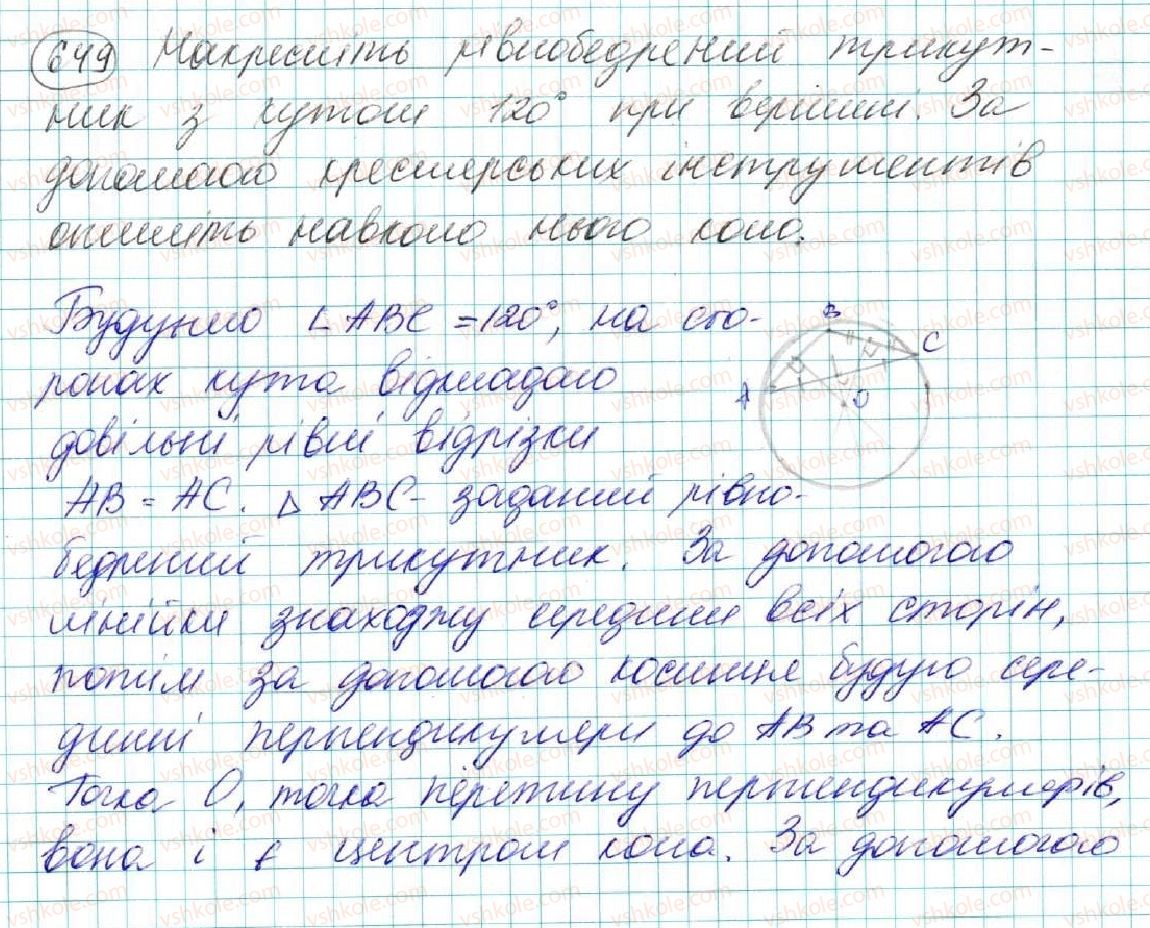 649 Накресліть рівнобедрений трикут-
ник з кутом 120° при вершині. За
допомогою креслярських інструментів
опишіть навколо нього коло.
Будуємо ∟ABC = 120°, на сто-
ронах кута відкладаю
довільні рівні відрізки
AB = AC. △ ABC - заданий рівно-
бедрений трикутник. За допомогою
лінійки знаходжу середини всіх сторін,
потім за допомогою косинця будую сере-
динні перпендикуляри до AB та AC.
Точка O, точка перетину перпендикулярів,
вона і є центром кола. За допомогою
B
C
A
O
vshkole.com